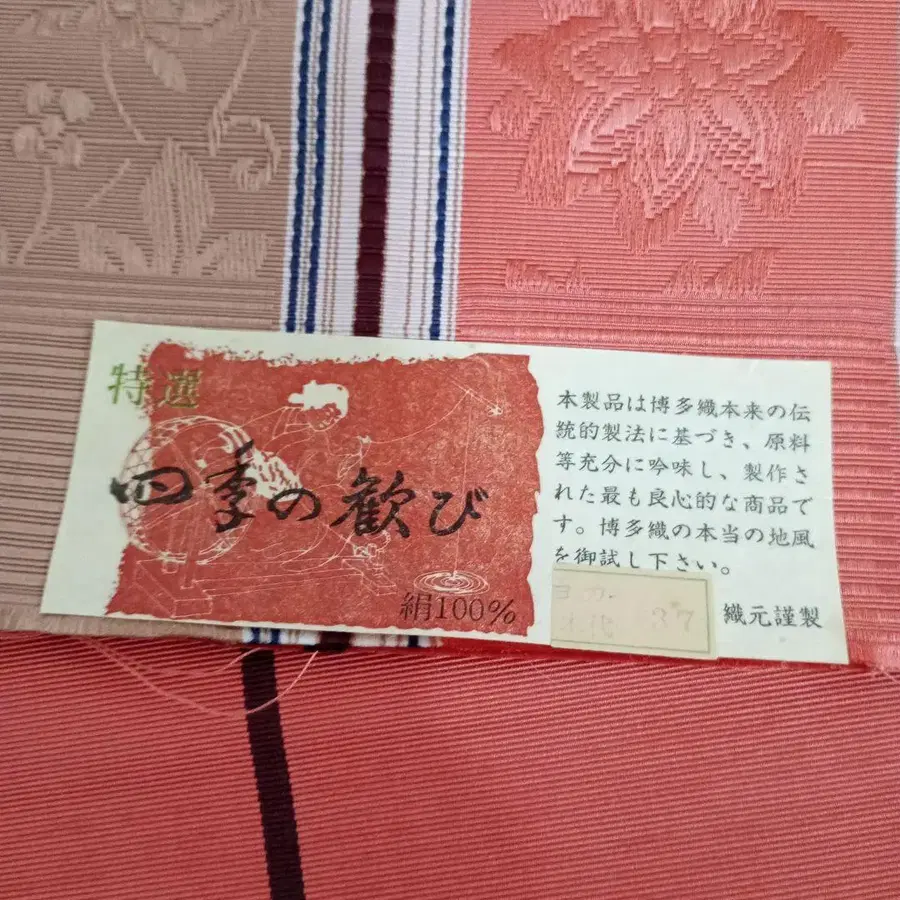 特選
四季の歓び
絹100%
本製品は博多織本来の伝
統的製法に基づき、原料
等充分に吟味し、製作さ
れた最も良心的な商品で
す。博多織の本当の地風
を御試し下さい。
織元謹製
37